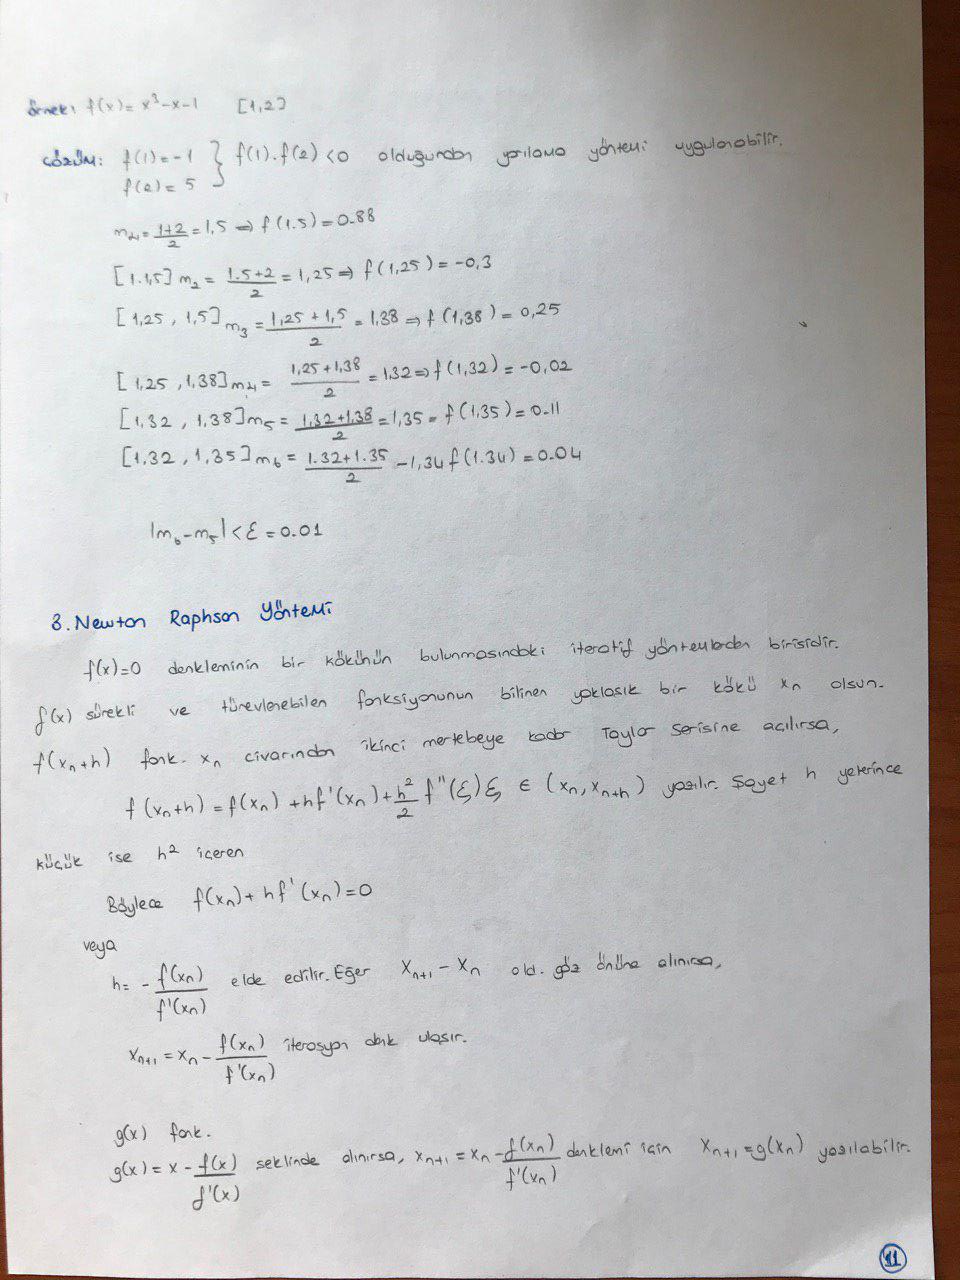 örnek: f(x)= x³-x-1 [1,2]
çözüm: f(1)=-1 } f(1).f(2)<0 olduğundan yarılama yöntemi uygulanabilir.
f(2)= 5
m₁= (1+2)/2 = 1,5 ⇒ f(1.5)=0.88
[1.1,5] m₂ = (1.5+2)/2 = 1,25 ⇒ f(1,25)= -0,3
[1,25 , 1,5] m₃ = (1,25+1,5)/2 = 1,38 ⇒ f(1,38)= 0,25
[1,25 ,1,38] m₄ = (1,25+1,38)/2 = 1,32 ⇒ f(1,32)= -0,02
[1,32 , 1,38] m₅ = (1,32+1,38)/2 = 1,35 = f(1,35)= 0.11
[1,32 , 1,35] m₆ = (1.32+1.35)/2 - 1,34 f(1.34)= 0.04
|m₆-m₅|<ε = 0.01
3. Newton Raphson Yöntemi
f(x)=0 denkleminin bir kökünün bulunmasındaki iteratif yöntemlerden birisidir.
f(x) sürekli ve türevlenebilen fonksiyonunun bilinen yaklaşık bir kökü xₙ olsun.
f(xₙ+h) fonk. xₙ civarından ikinci mertebeye kadar Taylor serisine açılırsa,
f(xₙ+h) = f(xₙ) +hf'(xₙ)+ h²/2 f''(ξ)ξ ∈ (xₙ, xₙ₊h) yazılır. Şayet h yeterince
küçük ise h² içeren
Böylece f(xₙ)+hf'(xₙ)=0
veya
h= - f(xₙ)/f'(xₙ) elde edilir. Eğer xₙ₊₁ - xₙ old. göz önüne alınırsa,
xₙ₊₁ = xₙ - f(xₙ)/f'(xₙ) iterasyon denk ulaşır.
g(x) fonk.
g(x)= x - f(x)/f'(x) şeklinde alınırsa, xₙ₊₁ = xₙ - f(xₙ)/f'(xₙ) denklemi için xₙ₊₁ =g(xₙ) yazılabilir.
11